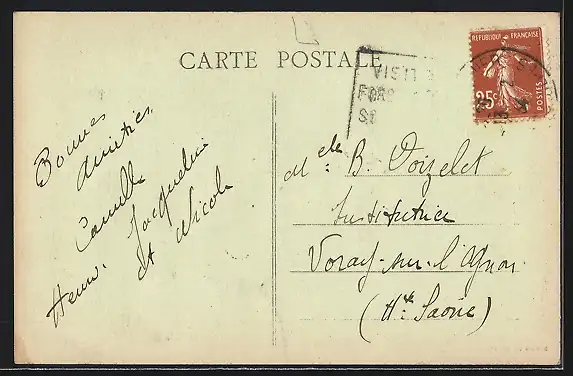 CARTE POSTALE
RÉPUBLIQUE FRANÇAISE
25c
POSTES
VISIT
Bonnes
Amitiés
Camille
Henri. Jacqueline
et Nicole
Melle B. Voizelet
Institutrice
Voray-sur-l'Ognon
(Hte Saône)